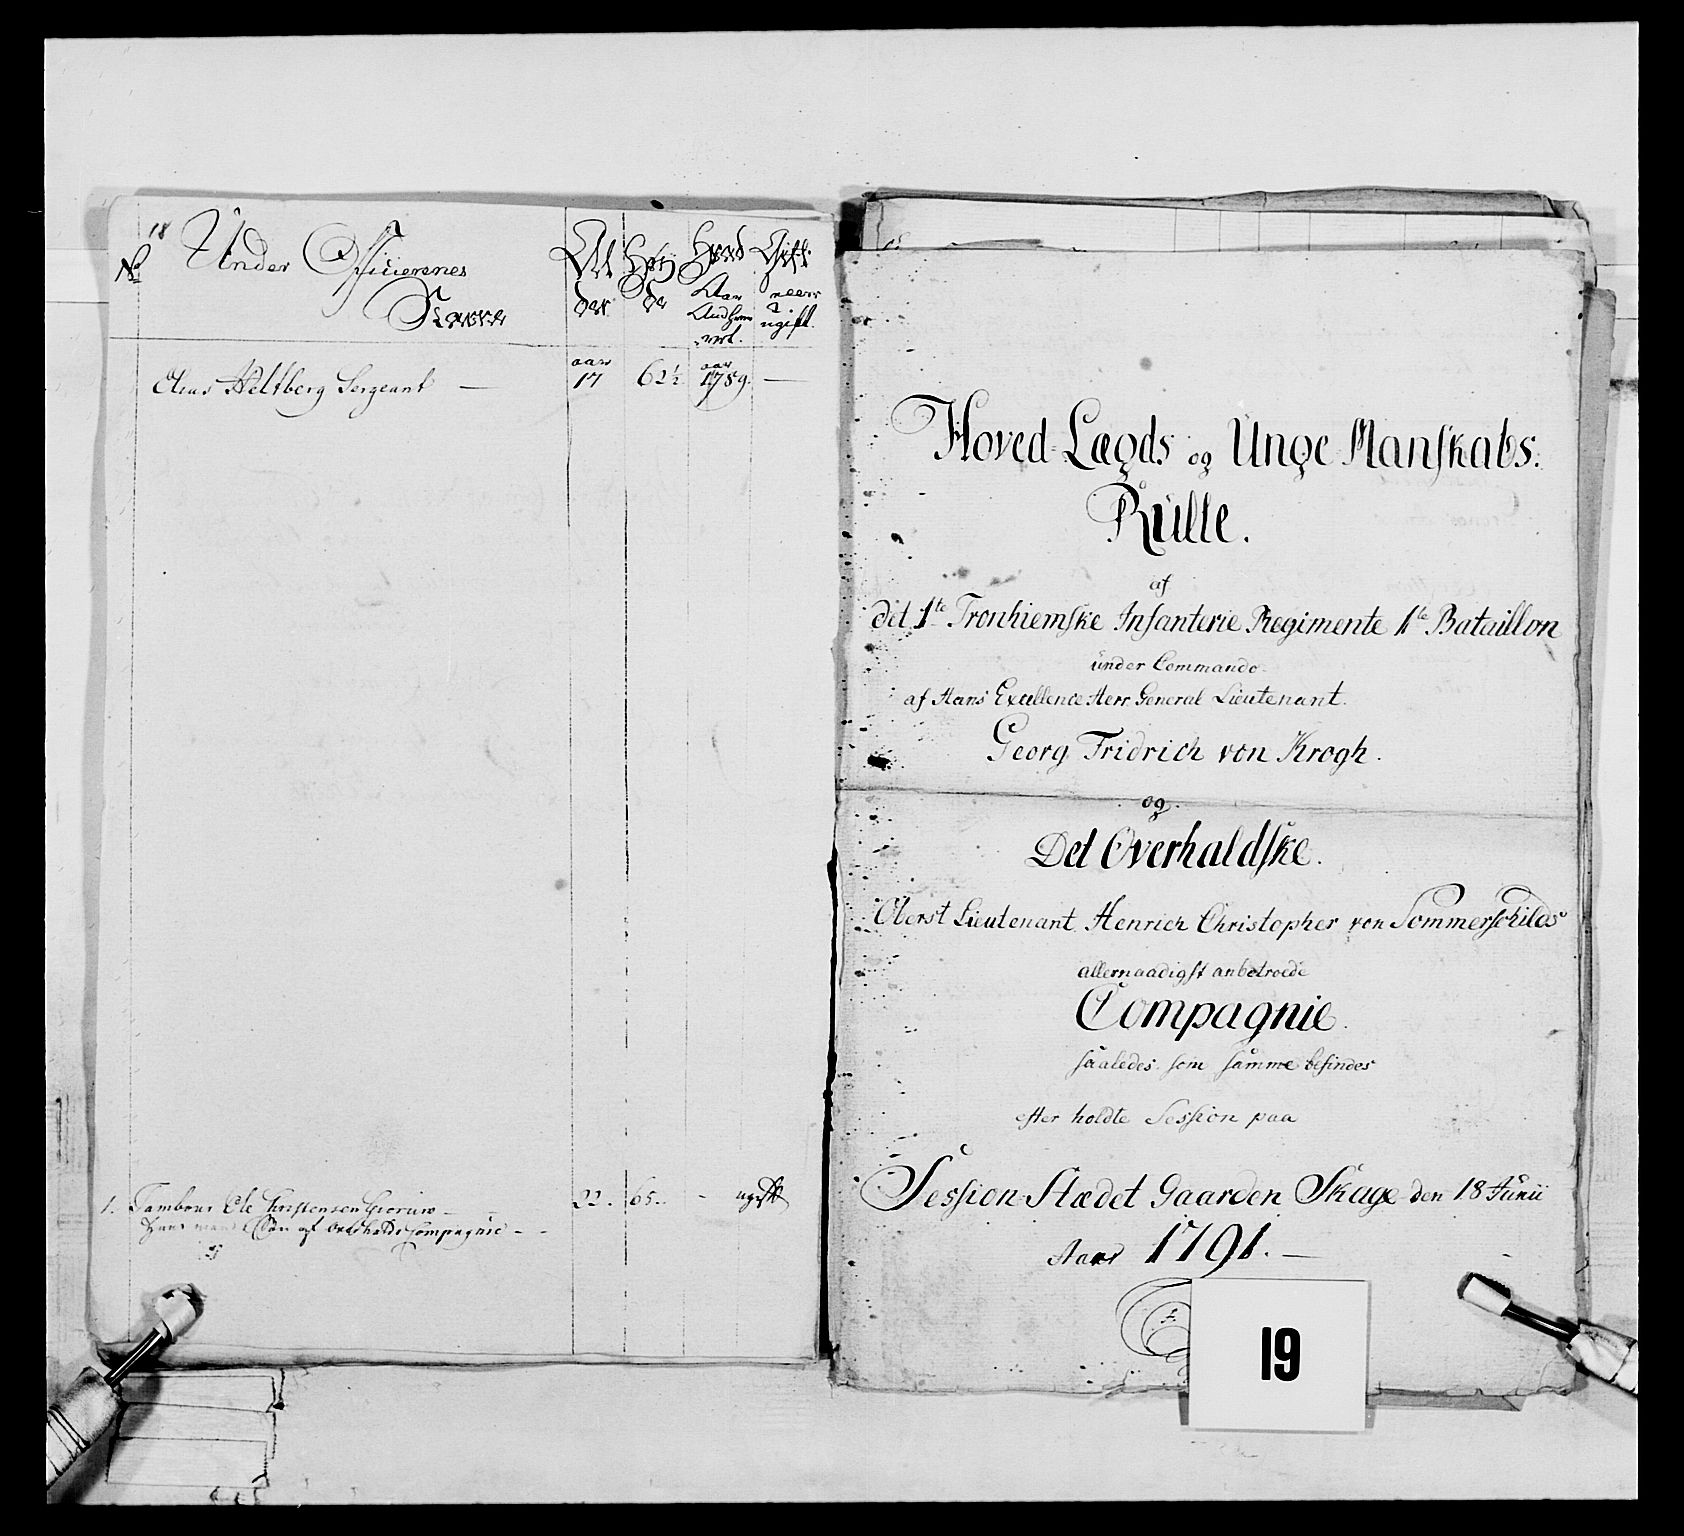 18
No
Under Officierenes
Navne
Al
der
Høy
de
Hvad
Aar
Andhver
vert.
Gift
eller
ugift.
aar
aar
Elias Heltberg Sergeant —
17
62½
1789.
—
1. Tambour Ole Christensen
22.
65.
-
ugift
Søn af Overhalds Compagnie - -
Hoved-Lægds og Unge Manskabs.
Rulle.
af
det 1te Tronhiemske Infanterie Regimente 1te Bataillon
under Commando
af Hans Excellence Herr General Lieutenant.
Georg Fridrich von Krogh.
og.
Det Overhaldske.
Oberst Lieutenant Henrich Christopher von Sommerschilds
allernaadigst anbetroede
Compagnie.
saaledes som samme befindes
efter holdte Session paa
Session-Stædet Gaarden Skage den 18 Junii
Aar 1791. —
19